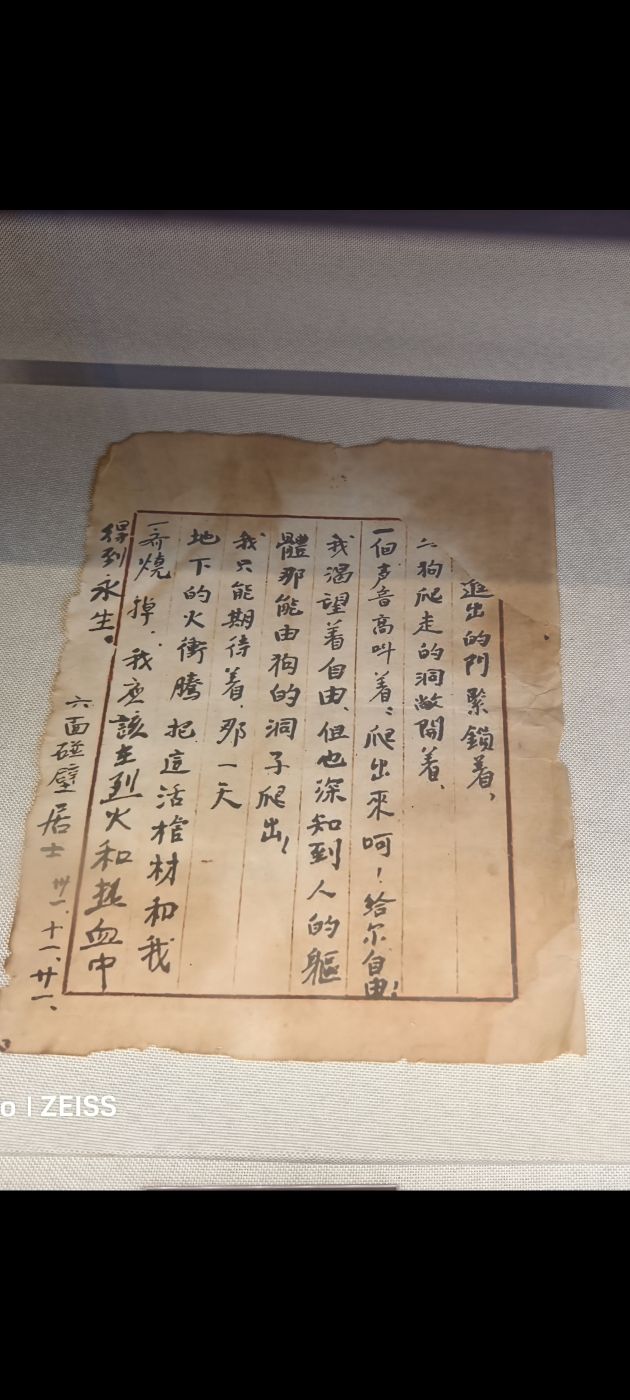 進出的門緊鎖着,
狗爬走的洞敞開着、
一個声音高叫着:爬出來呵!給尔自由!
我渴望着自由、但也深知到人的軀
體那能由狗的洞子爬出!
我只能期待着、那一天
地下的火衝騰 把這活棺材和我
一齊燒掉.我应該在烈火和热血中
得到永生。
六面碰壁居士 卅一、十一、廿一、
o | ZEISS